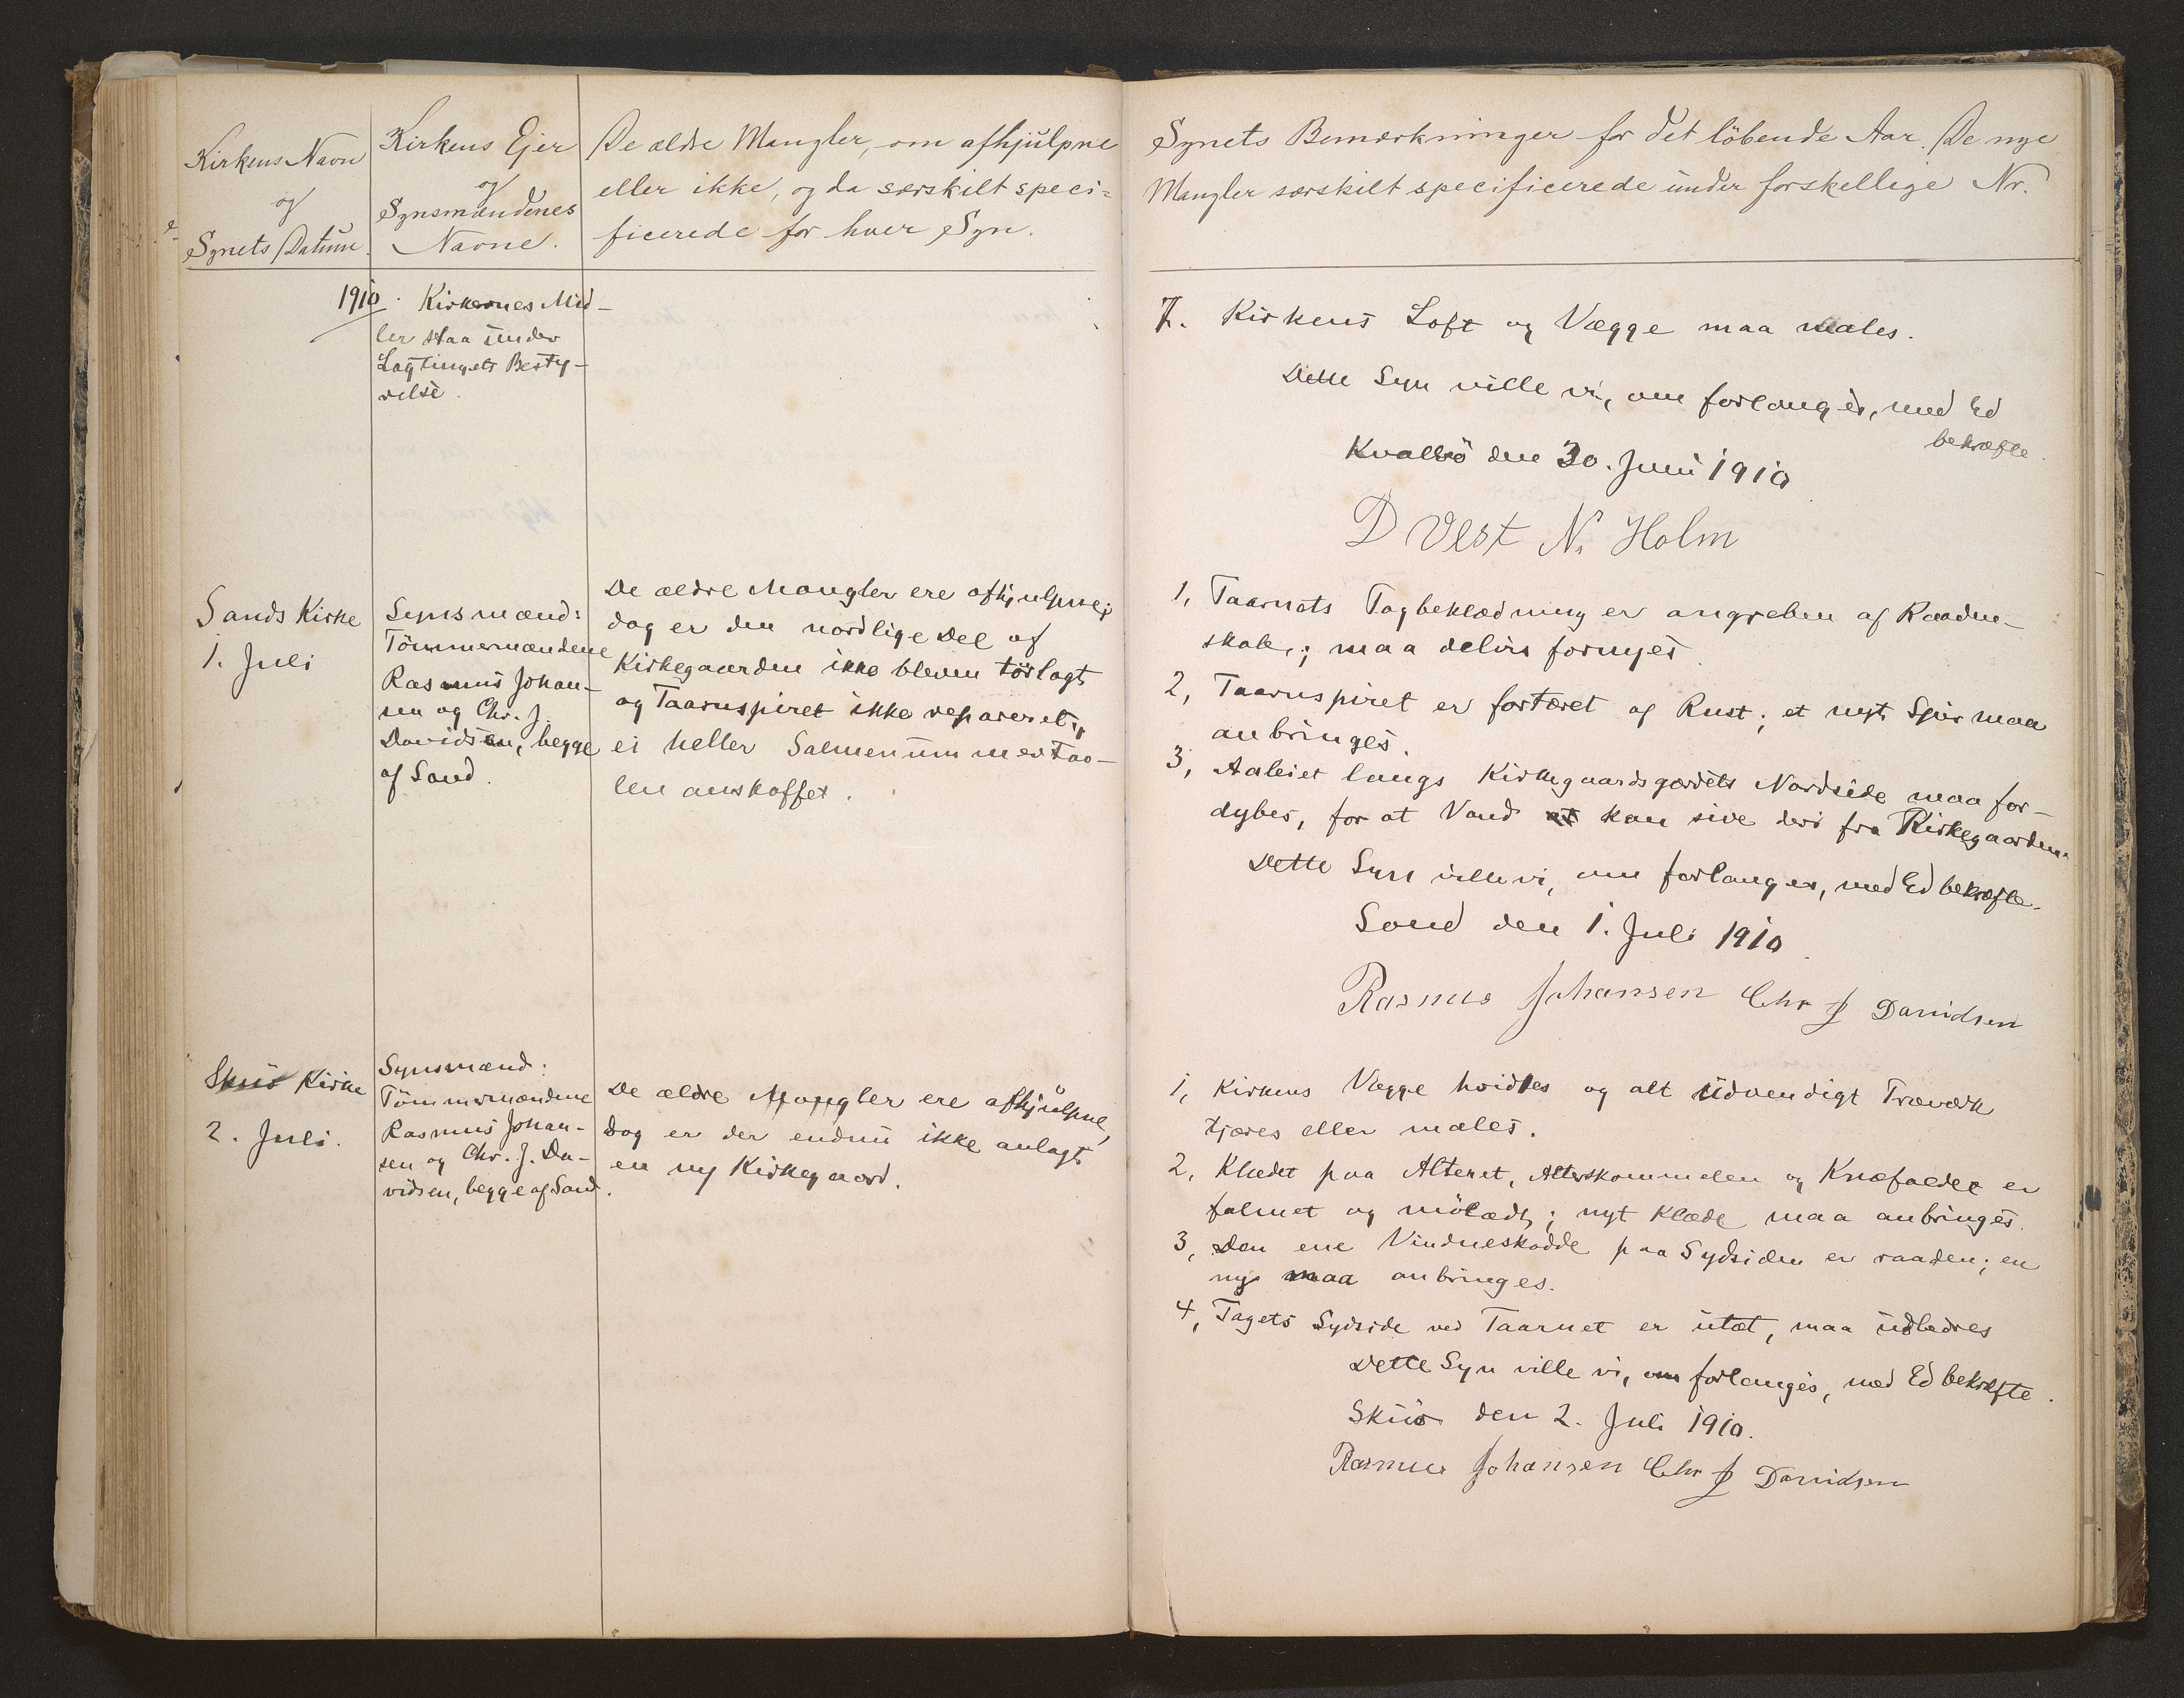 Kirkens Navn
og
Synets Datum.
Kirkens Ejer
og
Synsmændenes
Navne.
De ældre Mangler, om afhjulpne
eller ikke, og da særskilt speci=
ficerede for hver Syn.
1910.
Kirkernes Mid-
ler staa under
Lagtingets Besty-
relse.
Sands Kirke
1. Juli
Synsmænd:
Tömmermændene
Rasmus Johan-
sen og Chr. J.
Davidsen, begge
af Sand.
De ældre Mangler ere afhjulpne;
dog er den nordlige Del af
Kirkegaarden ikke bleven törlagt
og Taarnspiret ikke repareret,
ei heller Salmenummertav-
len anskaffet.
Skuö Kirke
2. Juli.
Synsmænd:
Tömmermændene
Rasmus Johan-
sen og Chr. J. Da-
vidsen, begge af Sand.
De ældre Mangler ere afhjulpne,
Dog er der endnu ikke anlagt
en ny Kirkegaard.
Synets Bemærkninger for det löbende Aar. De nye
Mangler særskilt specificerede under forskellige Nr.
7. Kirkens Loft og Vægge maa males.
Dette Syn ville vi, om forlanges, med Ed
bekræfte.
Kvalbö den 30. Juni 1910
D Vest N. Holm
1, Taarnets Tagbeklædning er angreben af Raaden-
skab; maa delvis fornyes
2, Taarnspiret er fortæret af Rust; et nyt Spir maa
anbringes.
3, Aaleiet langs Kirkegaardsgærdets Nordside maa for-
dybes, for at Vand at kan sive deri fra Kirkegaarden.
Dette Syn ville vi, om forlanges, med Ed bekræfte.
Sand den 1. Juli 1910.
Rasmus Johansen Chr J Davidsen
1, Kirkens Vægge hvidtes og alt üdvendigt Træværk
tjæres eller males.
2, Klædet paa Alteret, Alterskammelen og Knæfaldet er
falmet og mölædt; nyt Klæde maa anbringes.
3, Den ene Vindueskodde paa Sydsiden er raaden; en
ny maa anbringes.
4, Tagets Sydside ved Taarnet er utæt, maa udbedres
Dette Syn ville vi, om forlanges, med Ed bekræfte.
Skuö den 2. Juli 1910.
Rasmus Johansen Chr J Davidsen